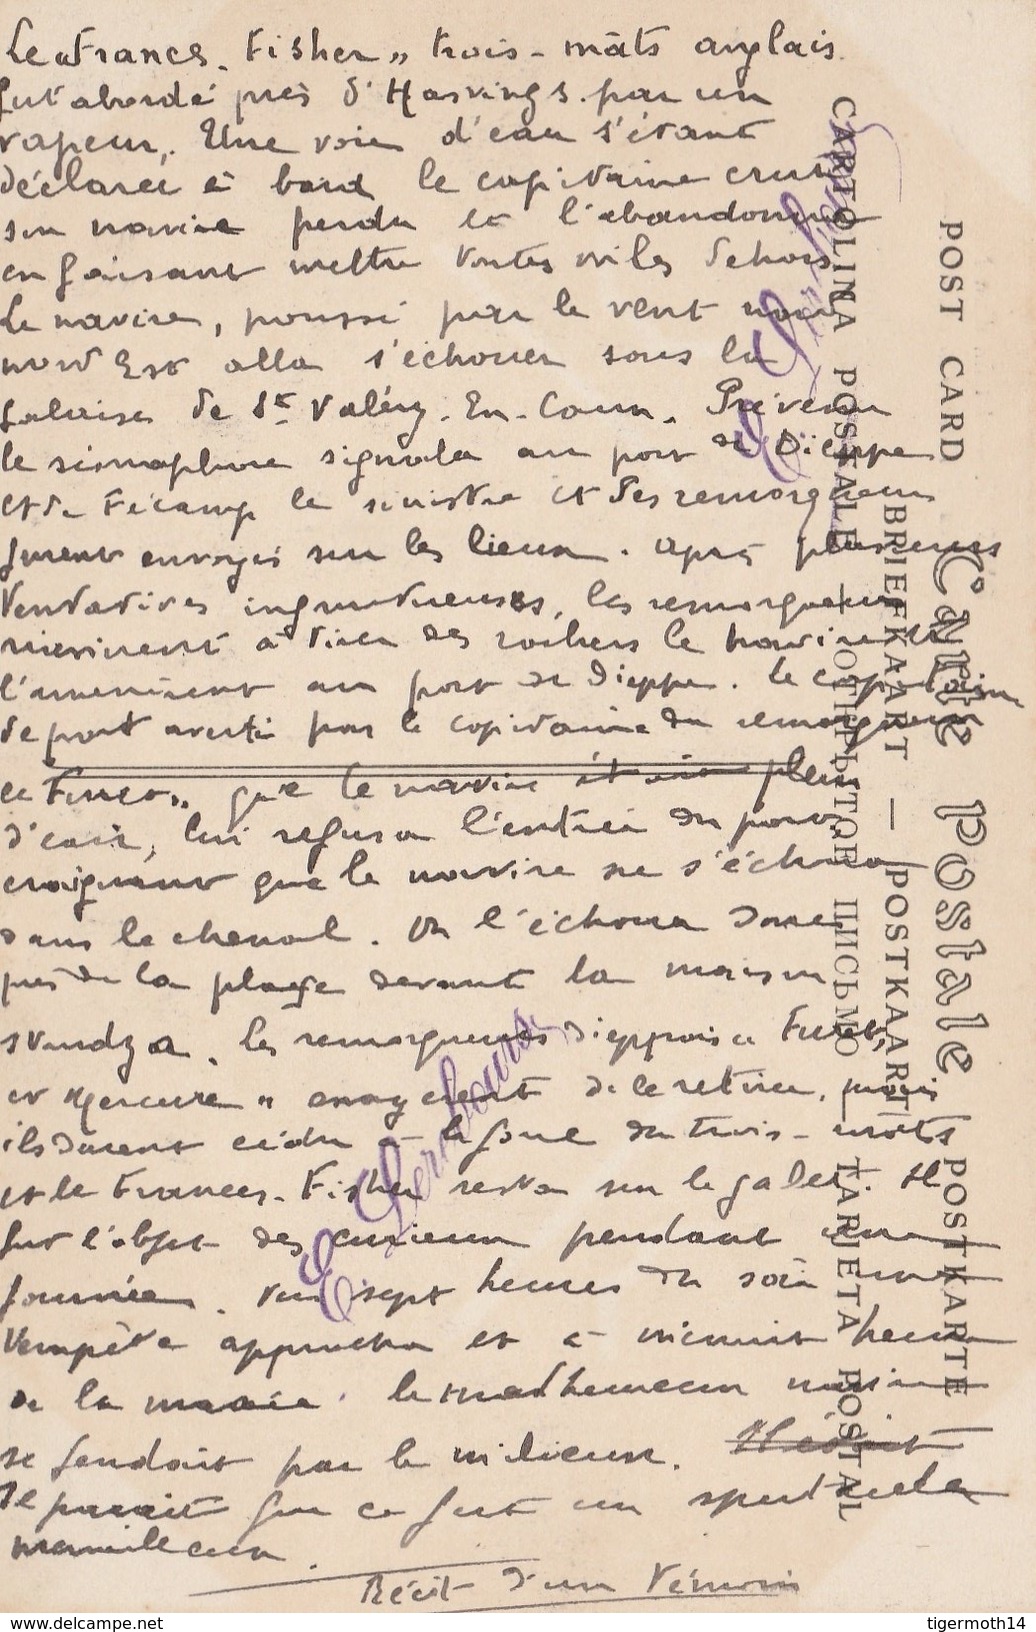 Le « Frances. Fisher » trois-mâts anglais
fut abordé près d'Hasvings par un
vapeur. Une voie d'eau s'étant
déclarée à bord le capitaine crut
son navire perdu et l'abandonna
en faisant mettre toutes voiles dehors
Le navire, poussé par le vent
nord Est alla s'échouer sous la
falaise de St Valéry. En-Caux. Prévenu
le sémaphore signala au port de Dieppe
et de Fécamp le sinistre et des remorqueurs
furent envoyés sur les lieux. Après plusieurs
tentatives infructueuses, les remorqueurs
réussirent à tirer des rochers le navire et
l'amenèrent au port de Dieppe. Le capitaine
de port averti par le capitaine du remorqueur
le Furet » que le navire était plein
d'eau, lui refusa l'entrée du port,
craignant que le navire ne s'échoua
dans le chenal. On l'échoua donc
près de la plage devant la maison
Les remorqueurs Dieppois « Furet »
et Mercure » essayèrent de le retirer, mais
ils durent céder à la force du trois-mâts
et le Frances. Fisher resta sur le galet. Il
fut l'objet des curieux pendant une
journée. Vers sept heures du soir une
tempête approcha et à minuit heure
de la marée, le malheureux navire
se fendait par le milieu. Il était
Il parait que ce fut un spectacle
merveilleux.
Récit d'un Témoin
Carte Postale
POST CARD
POSTKARTE
BRIEFKAART — POSTKAART
CARTOLINA POSTALE — ОТКРЫТОЕ ПИСЬМО — TARJETA POSTAL
www.delcampe.net
tigermoth14